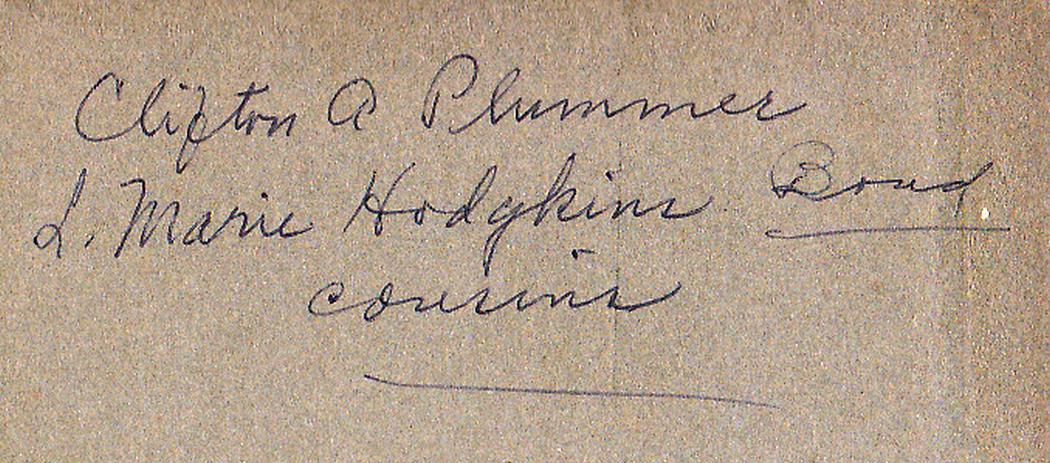 Clifton A Plummer
L. Marie Hodgkins Bond
cousins